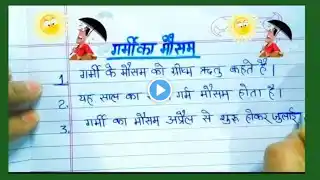 गर्मी का मौसम
1. गर्मी के मौसम को ग्रीष्म ऋतु कहते है ।
2. यह साल का गर्म मौसम होता है ।
3. गर्मी का मौसम अप्रैल से शुरू होकर जुलाई